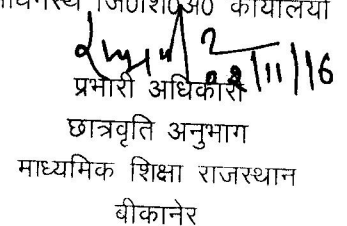 जि०शि०अ० कार्यालयों
02/11/16
प्रभारी अधिकारी
छात्रवृति अनुभाग
माध्यमिक शिक्षा राजस्थान
बीकानेर